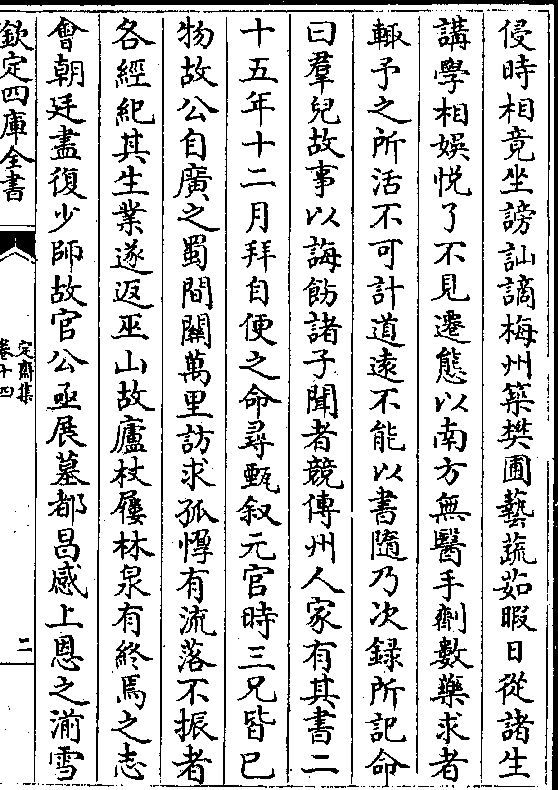 侵時相竟坐謗訕謫梅州築樊圃藝蔬茹暇日從諸生
講學相娯悦了不見遷態以南方無醫手劑數藥求者
輙予之所活不可計道逺不能以書隨乃次録所記命
曰羣兒故事以誨飭諸子聞者競傳州人家有其書二
十五年十二月拜自便之命尋甄叙元官時三兄皆已
物故公自廣之蜀間關萬里訪求孤惸有流落不振者
各經紀其生業遂返巫山故廬杖屨林泉有終焉之志
會朝廷盡復少師故官公亟展墓都昌感上恩之湔雪
欽定四庫全書
定齋集
卷十四
二